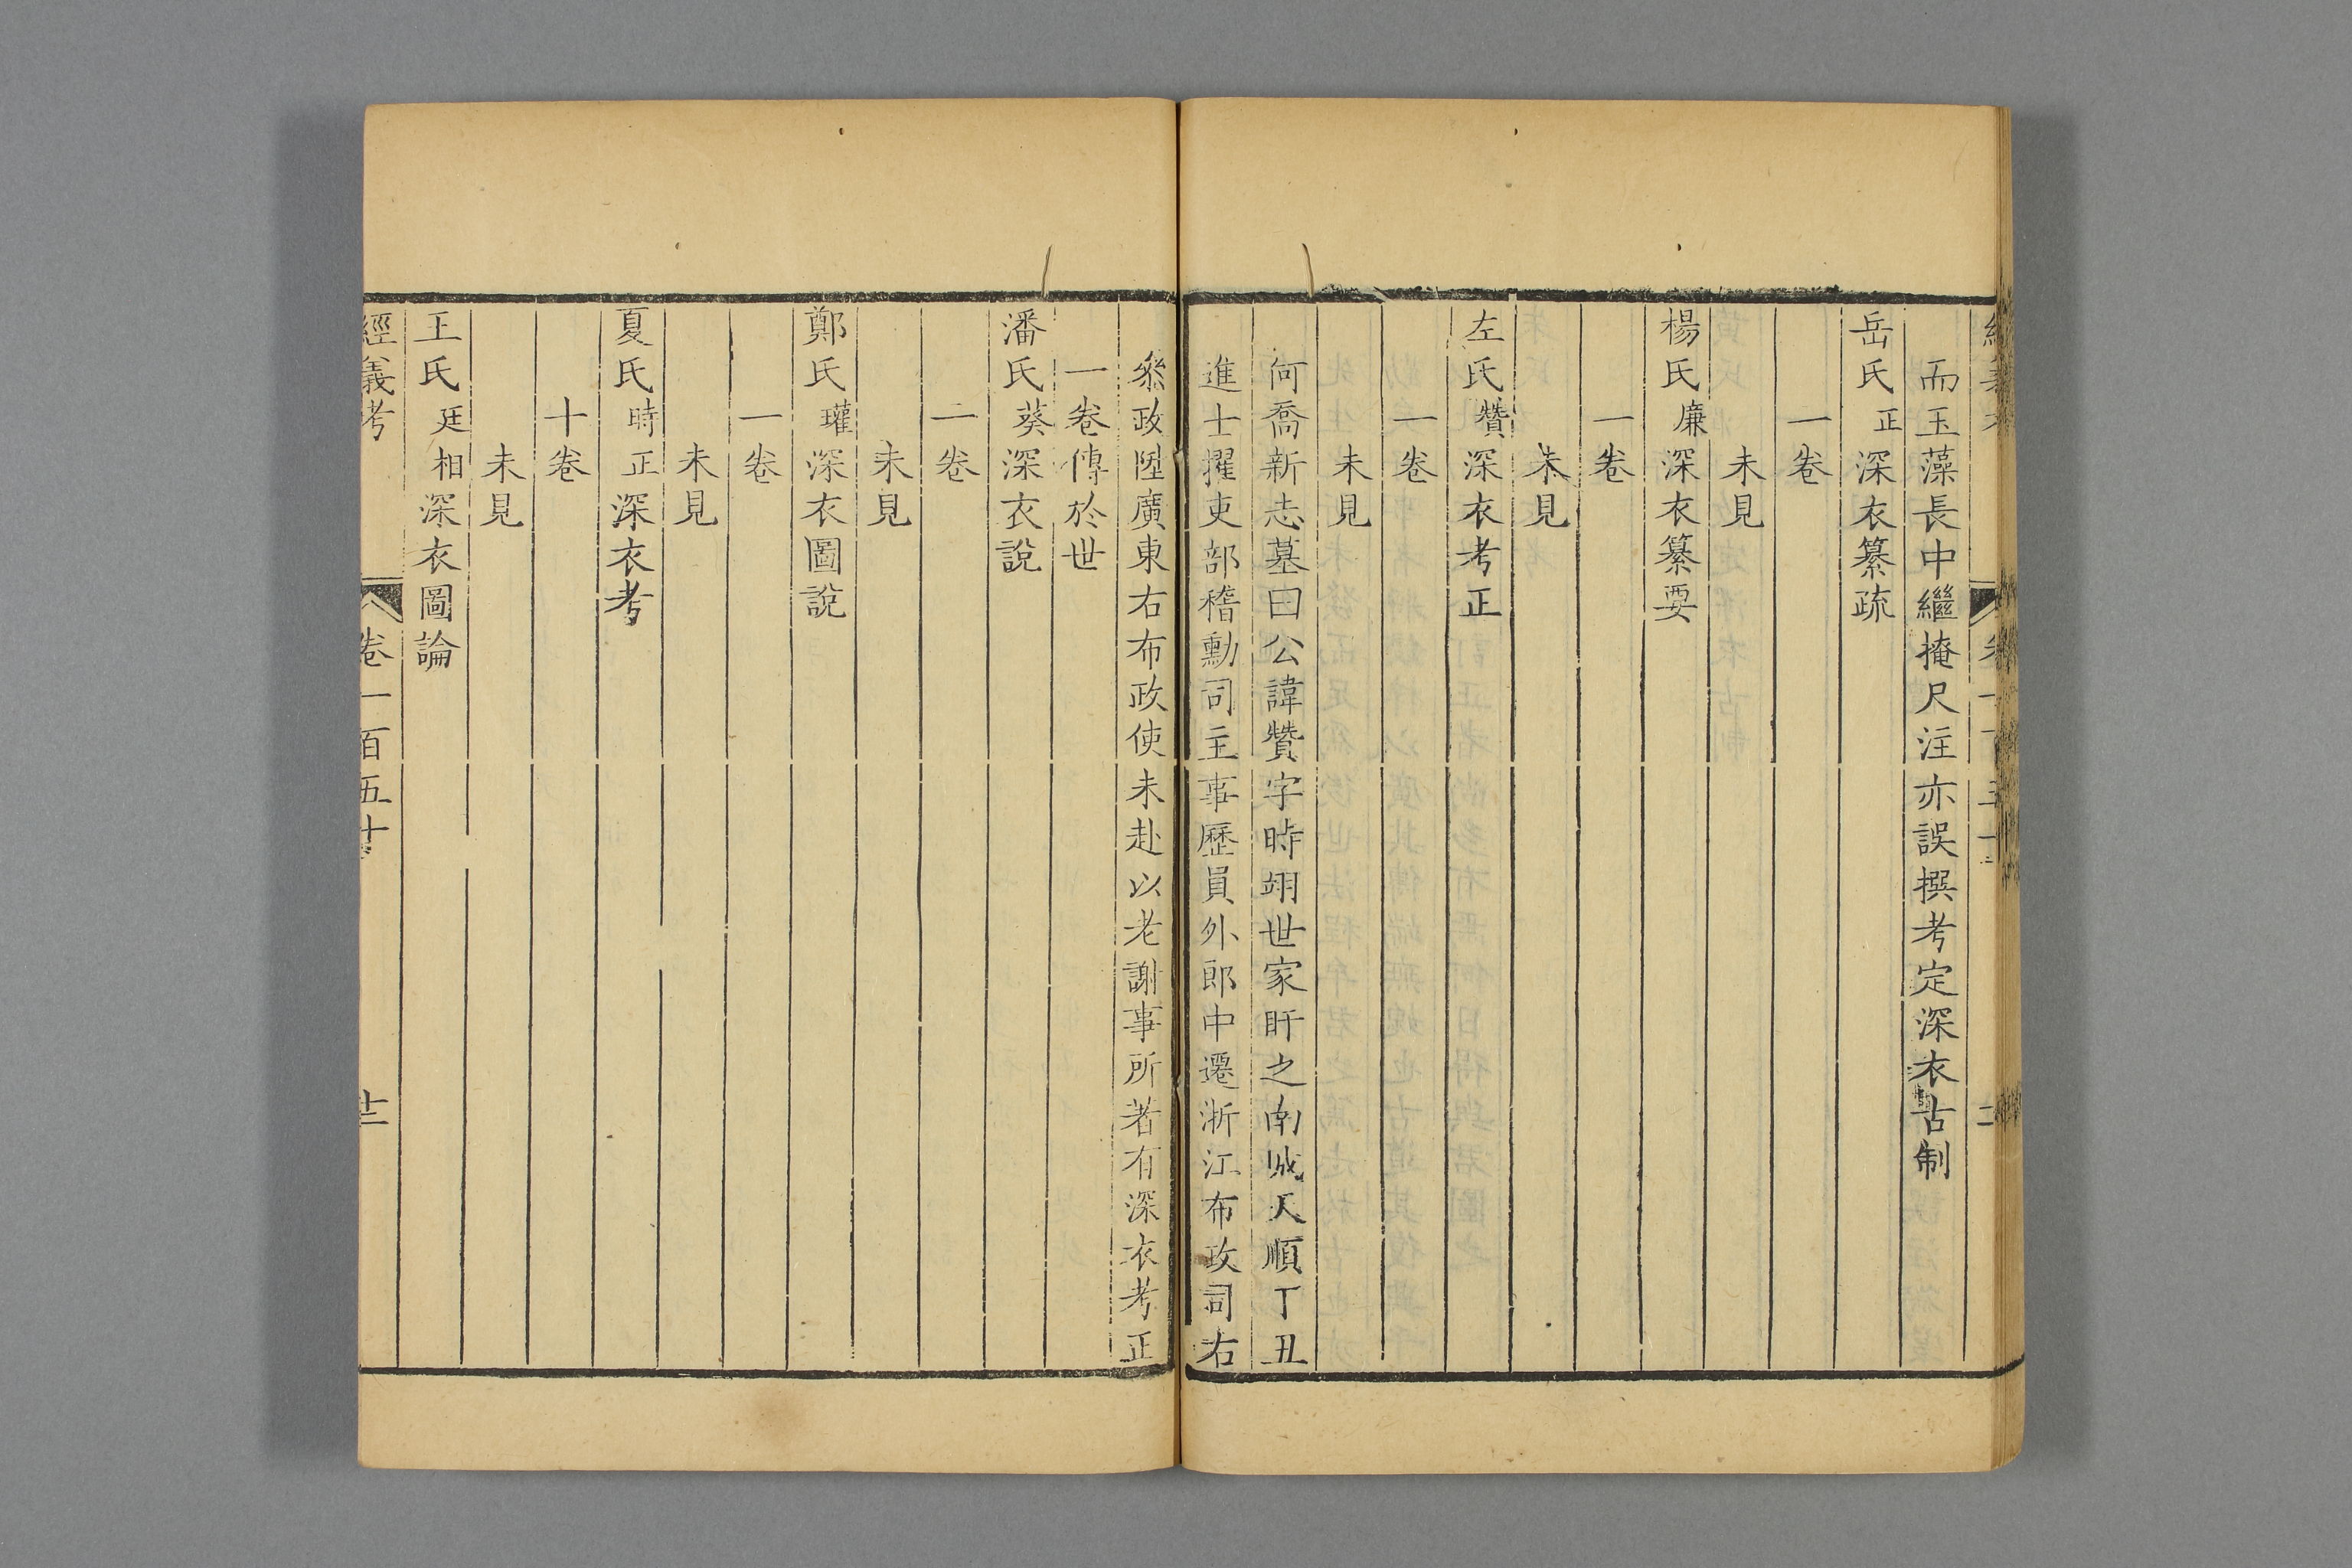 而玉藻長中繼掩尺注亦誤撰考定深衣古制
岳氏正深衣纂疏
一卷
未見
楊氏廉深衣纂要
一卷
未見
左氏贊深衣考正
一卷
未見
何喬新志墓曰公諱贊字時翊世家盱之南城天順丁丑
進士擢吏部稽勳司主事歷員外郎中遷浙江布政司右
叅政陞廣東右布政使未赴以老謝事所著有深衣考正
一卷傳於世
潘氏葵深衣說
一卷
未見
鄭氏瓘深衣圖說
一卷
未見
夏氏時正深衣考
十卷
未見
王氏廷相深衣圖論
經義考
卷一百五十